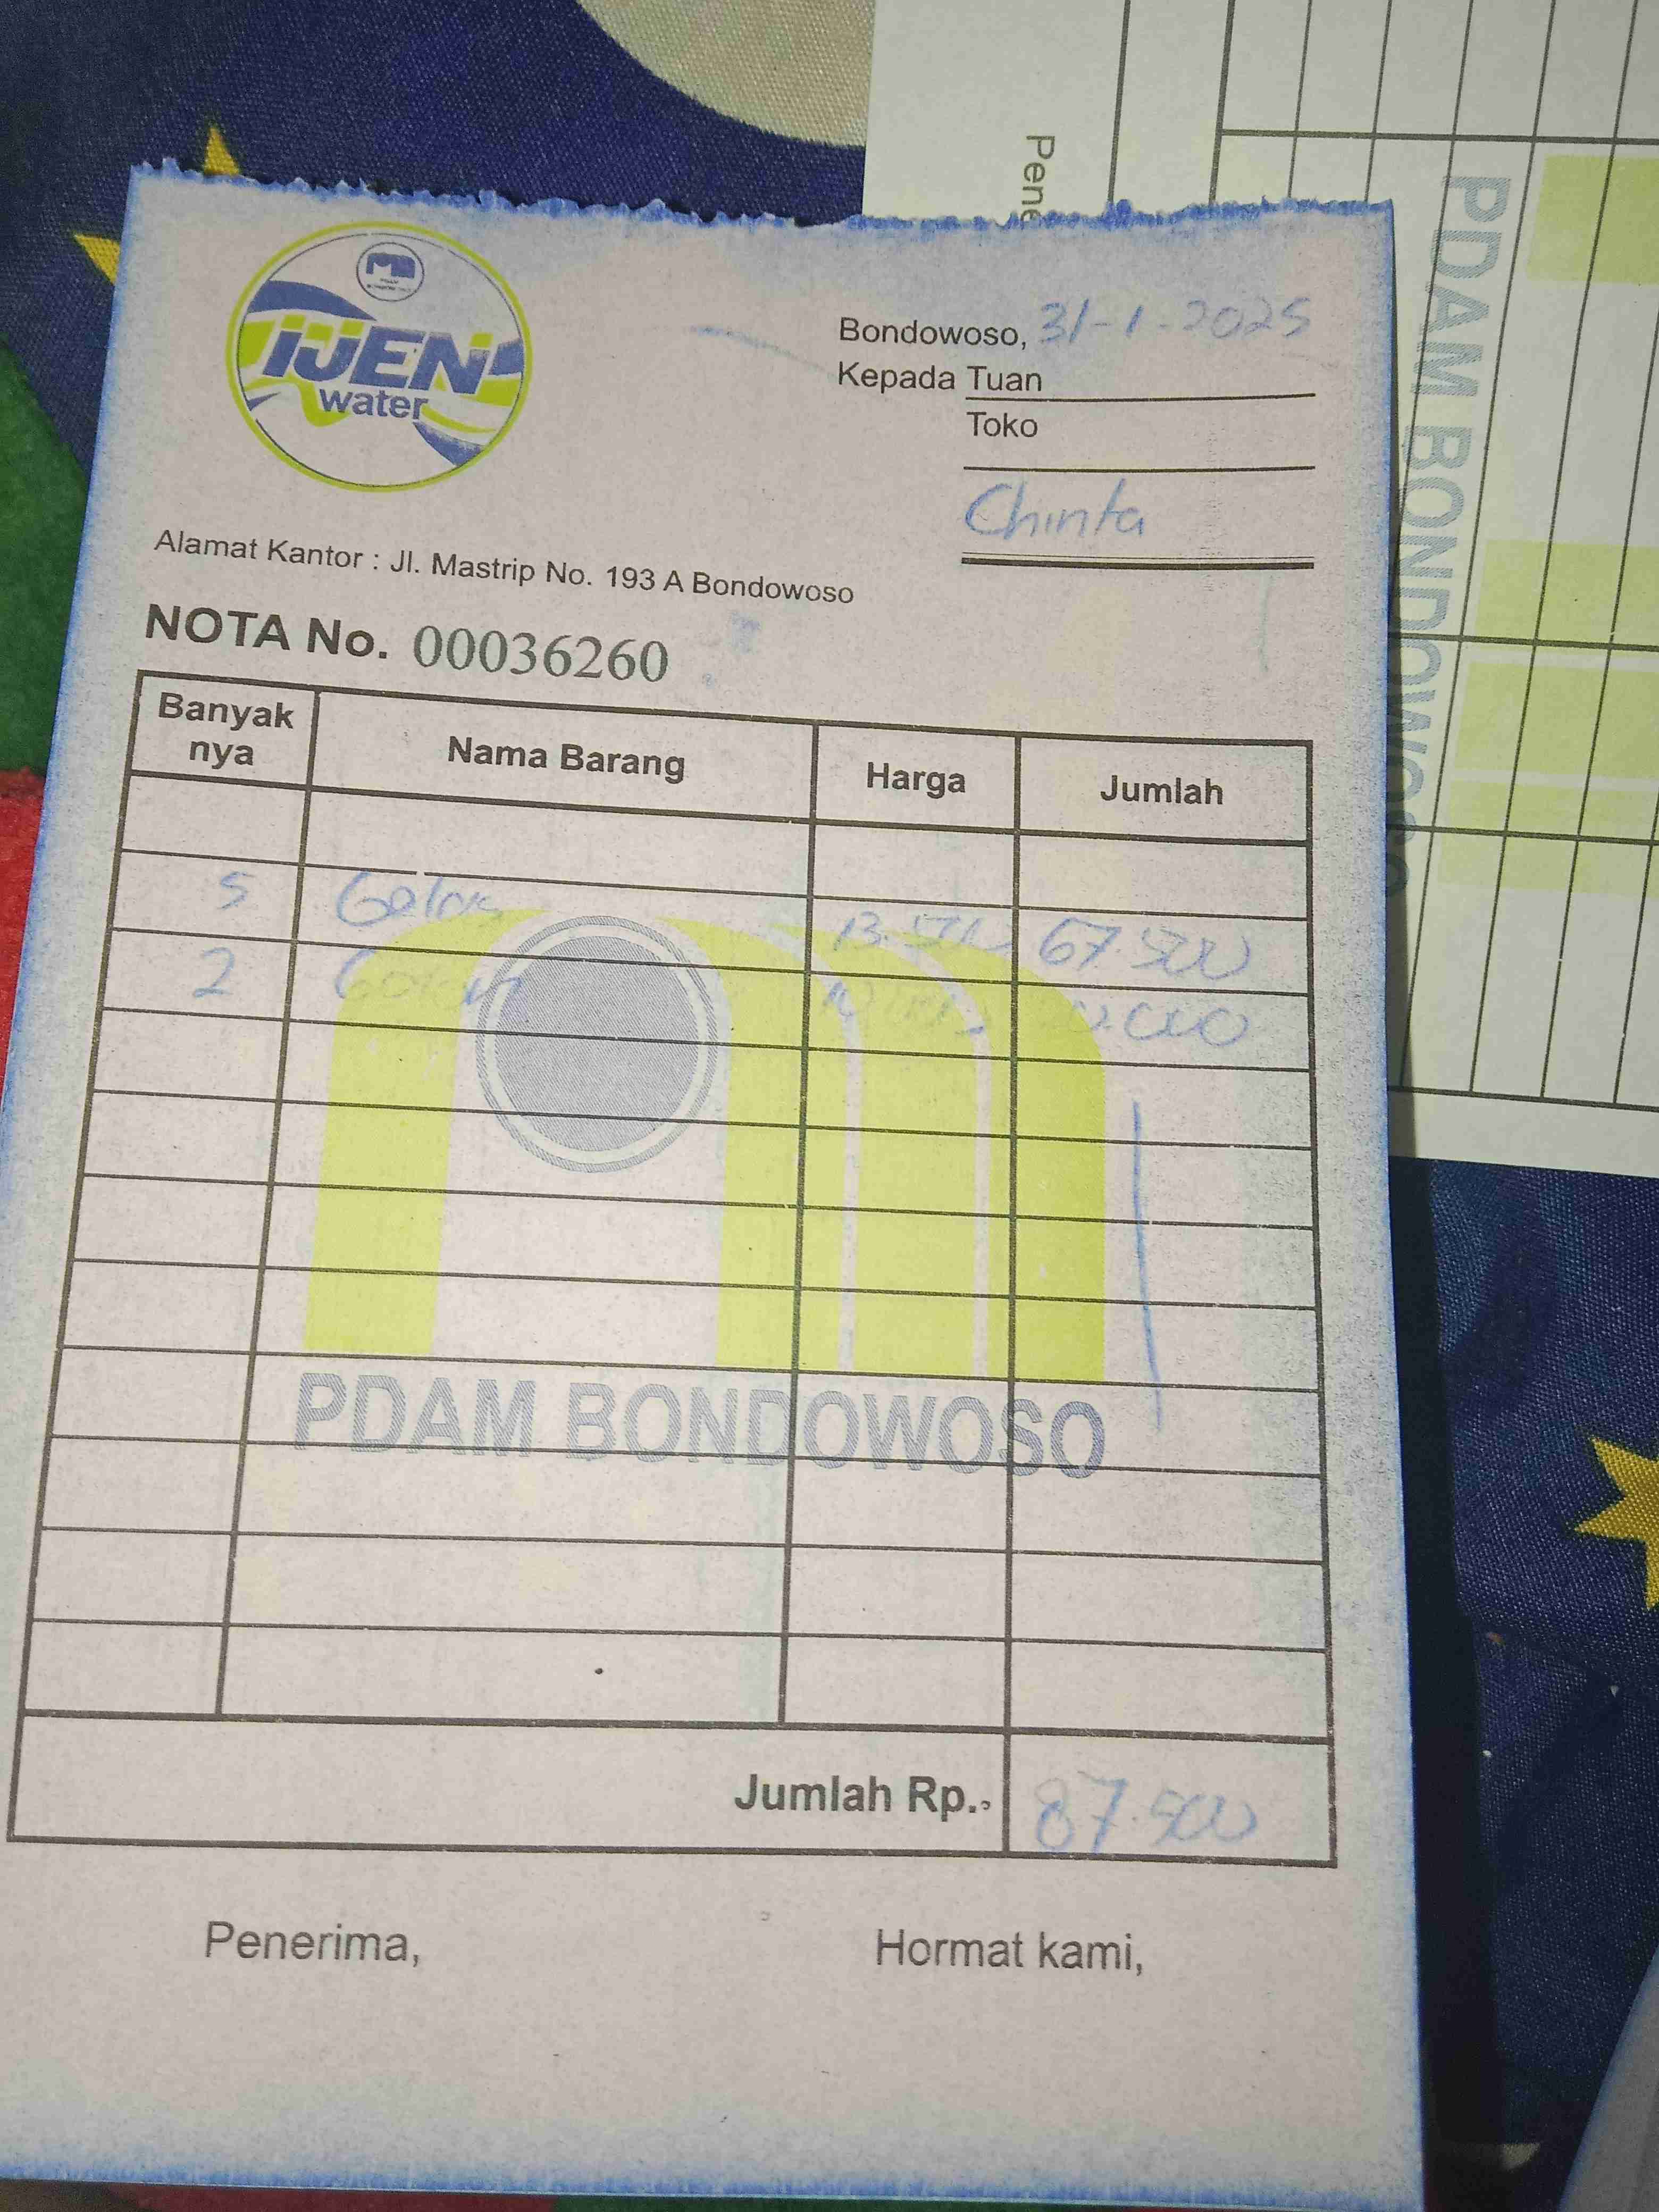 IJEN
water
Bondowoso, 31-1-2025
Kepada Tuan
Toko
Chinta
Alamat Kantor : Jl. Mastrip No. 193 A Bondowoso
NOTA No. 00036260
Banyak nya Nama Barang Harga Jumlah
5 Galon 13.500 67.500
2 Galon
PDAM BONDOWOSO
Jumlah Rp. 87.500
Penerima, Hormat kami,
PDAM BONDOWOSO